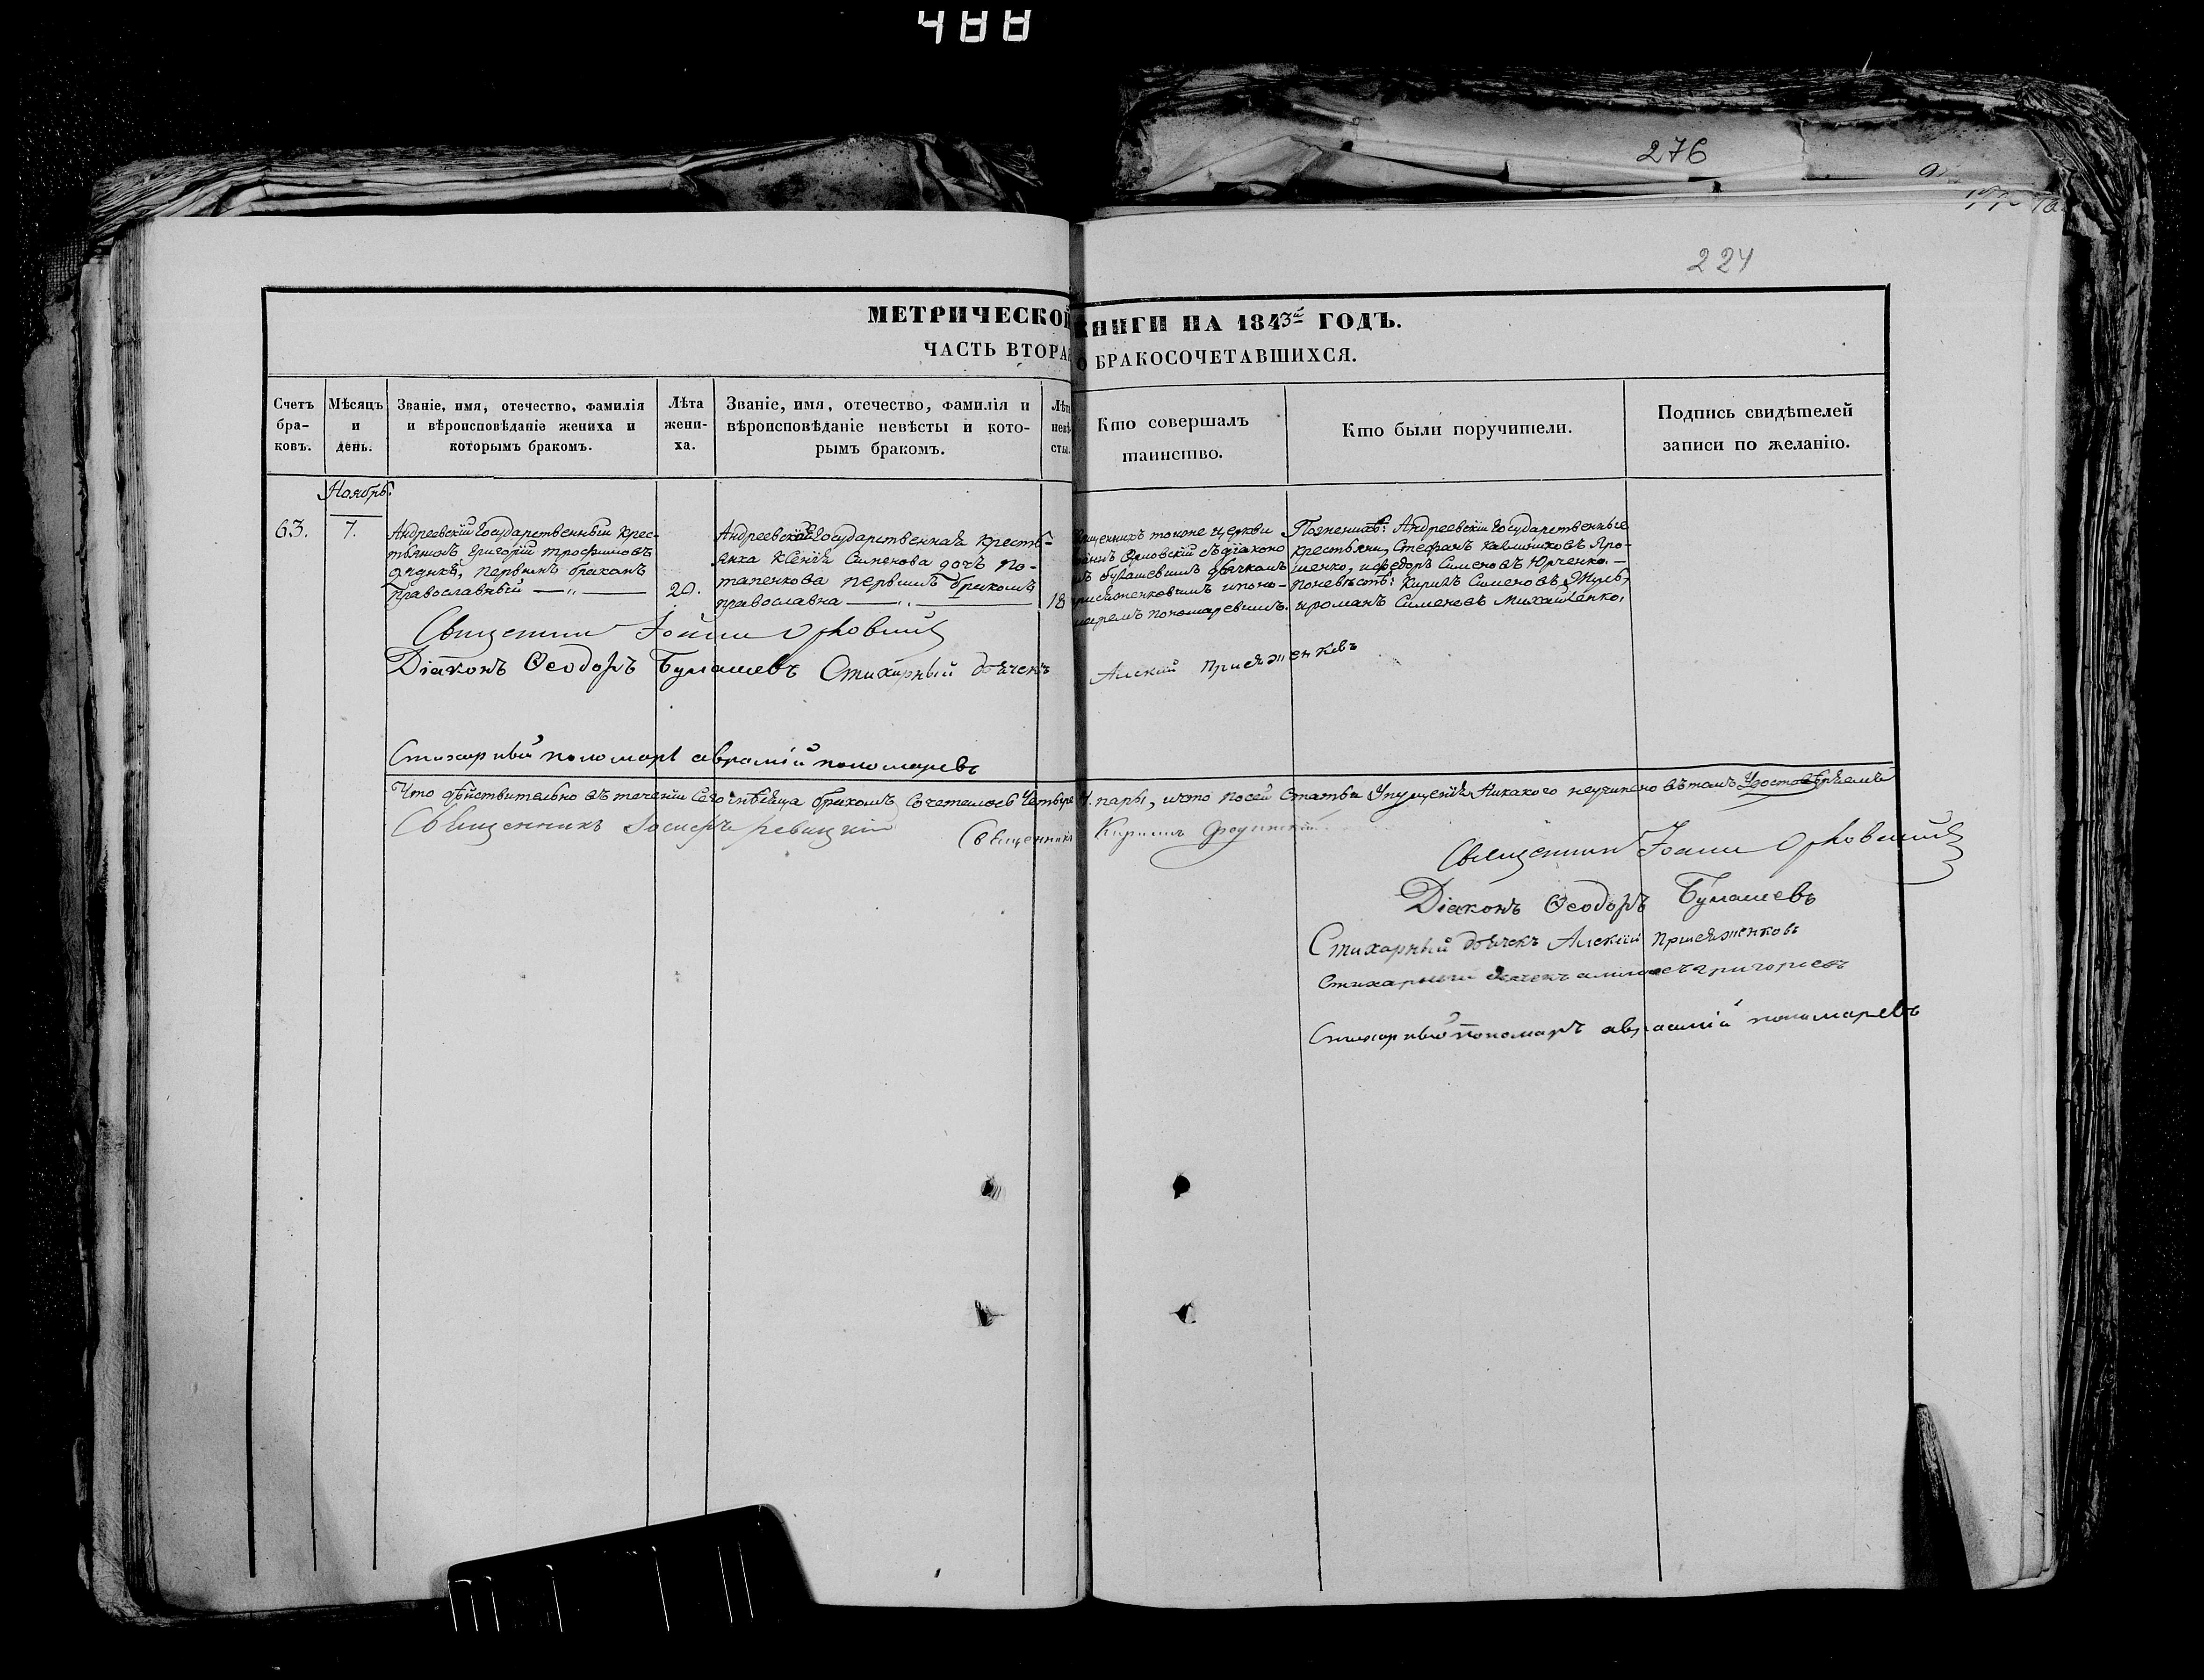 488
276
224
МЕТРИЧЕСКОЙ КНИГИ НА 1843й ГОДЪ.
ЧАСТЬ ВТОРАЯ О БРАКОСОЧЕТАВШИХСЯ.
Счетъ бра-ковъ.
Мѣсяцъ и день.
Званіе, имя, отечество, фамилія и вѣроисповѣданіе жениха и которымъ бракомъ.
Лѣта жени-ха.
Званіе, имя, отечество, фамилія и вѣроисповѣданіе невѣсты и кото-рымъ бракомъ.
Лѣта невѣ-сты.
Кто совершалъ таинство.
Кто были поручители.
Подпись свидѣтелей записи по желанію.
Ноябрь.
63.
7.
Андреевскій Государственный крес-
тьянинъ Григорій Трофимовъ
первымъ бракомъ
православный
20.
Андреевская Государственная кресть-
янка Ксенія Сименова дочь По-
тапенкова первымъ бракомъ
православна
18
священникъ тоюже церкви
Орловскій съ діаконо
Бугашевымъ дьячкомъ
Присяженковымъ ипоно-
маремъ Пономаревымъ.
Поженихѣ: Андреевскіи Государственные
крестьяни, Стефанъ Яро-
шенко, ифедоръ Сименовъ Юрченко. —
Поневѣстѣ: Кирилъ Сименовъ
ироманъ Сименовъ Михайленко,
Священник Іоанн Орловскій
Діаконъ Ѳеодоръ Бугашевъ Стихарный дьячекъ Алексій Присяженковъ
Стихарный пономарь аврамій пономаревъ
Что дѣйствительно въ теченіи Сего мѣсяца бракомъ сочеталось Четыре 4. пары, ичто посей Статьи Упущенія Никакого неучинено вътомъ Удостовѣряемъ
Священникъ Іосифъ ревицкій Священникъ Кирилъ
Священник Іоанн Орловскій
Діаконъ Ѳеодоръ Бугашевъ
Стихарный дьячекъ Алексій Присяженковъ
Стихарный дьячекъ григориевъ
Стихарный пономарь аврамій пономаревъ